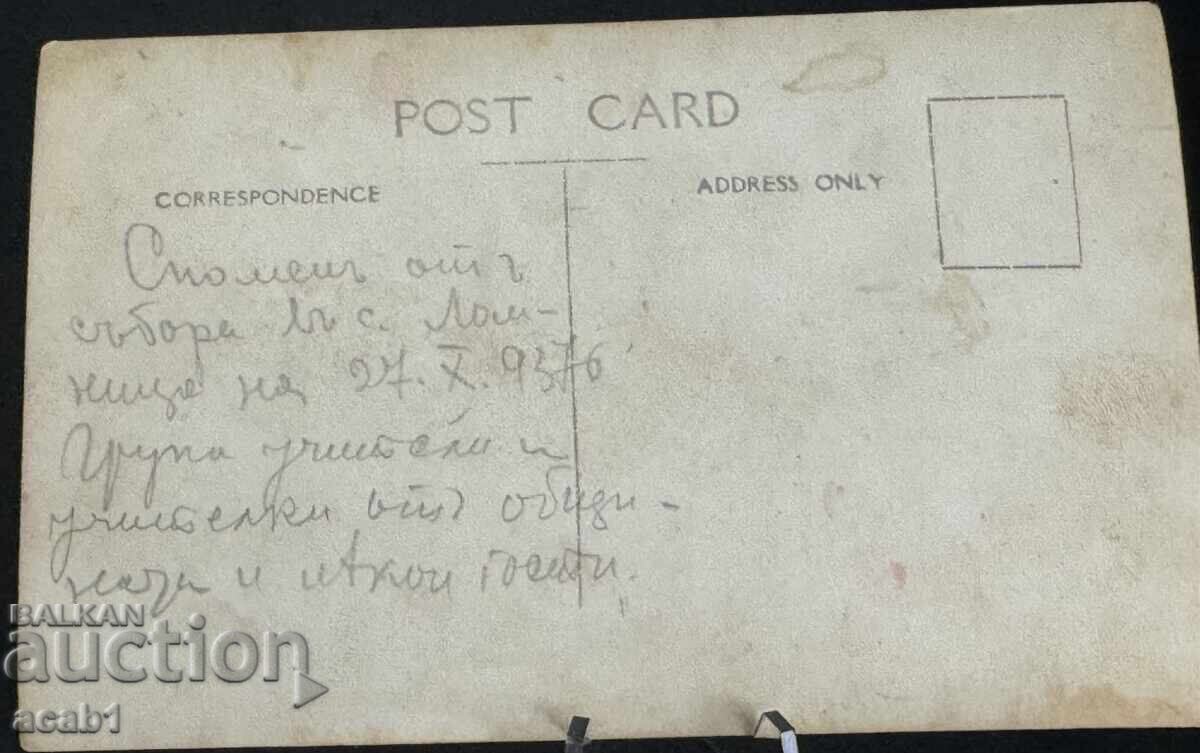 POST CARD
CORRESPONDENCE
ADDRESS ONLY
Споменъ отъ
събора въ с. Лом-
ница на 27.X.937б
Група учители и
учителки отъ
и нѣкои гости.
BALKAN
auction
acab1